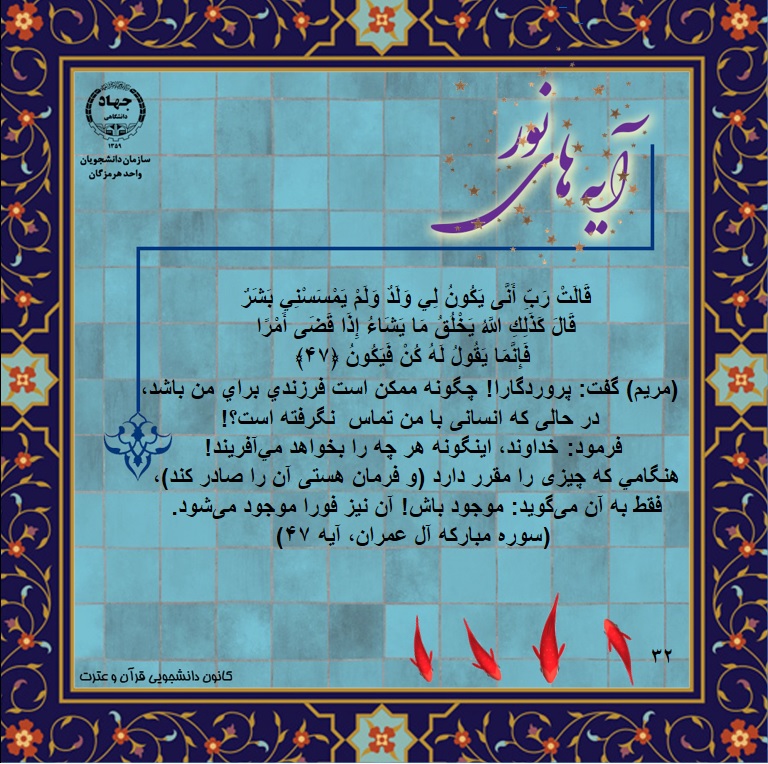 آیه های نور
جهاد
دانشگاهی
۱۳۵۹
سازمان دانشجویان
واحد هرمزگان
قَالَتْ رَبِّ أَنَّى يَكُونُ لِي وَلَدٌ وَلَمْ يَمْسَسْنِي بَشَرٌ
قَالَ كَذَلِكِ اللَّهُ يَخْلُقُ مَا يَشَاءُ إِذَا قَضَى أَمْرًا
فَإِنَّمَا يَقُولُ لَهُ كُنْ فَيَكُونُ ﴿۴۷﴾
(مريم) گفت: پروردگارا! چگونه ممکن است فرزندي براي من باشد،
در حالی که انسانی با من تماس نگرفته است؟!
فرمود: خداوند، اینگونه هر چه را بخواهد می‌آفریند!
هنگامي که چیزی را مقرر دارد (و فرمان هستی آن را صادر کند)،
فقط به آن می‌گوید: موجود باش! آن نیز فورا موجود می‌شود.
(سوره مبارکه آل عمران، آیه ۴۷)
۳۲
کانون دانشجویی قرآن و عترت